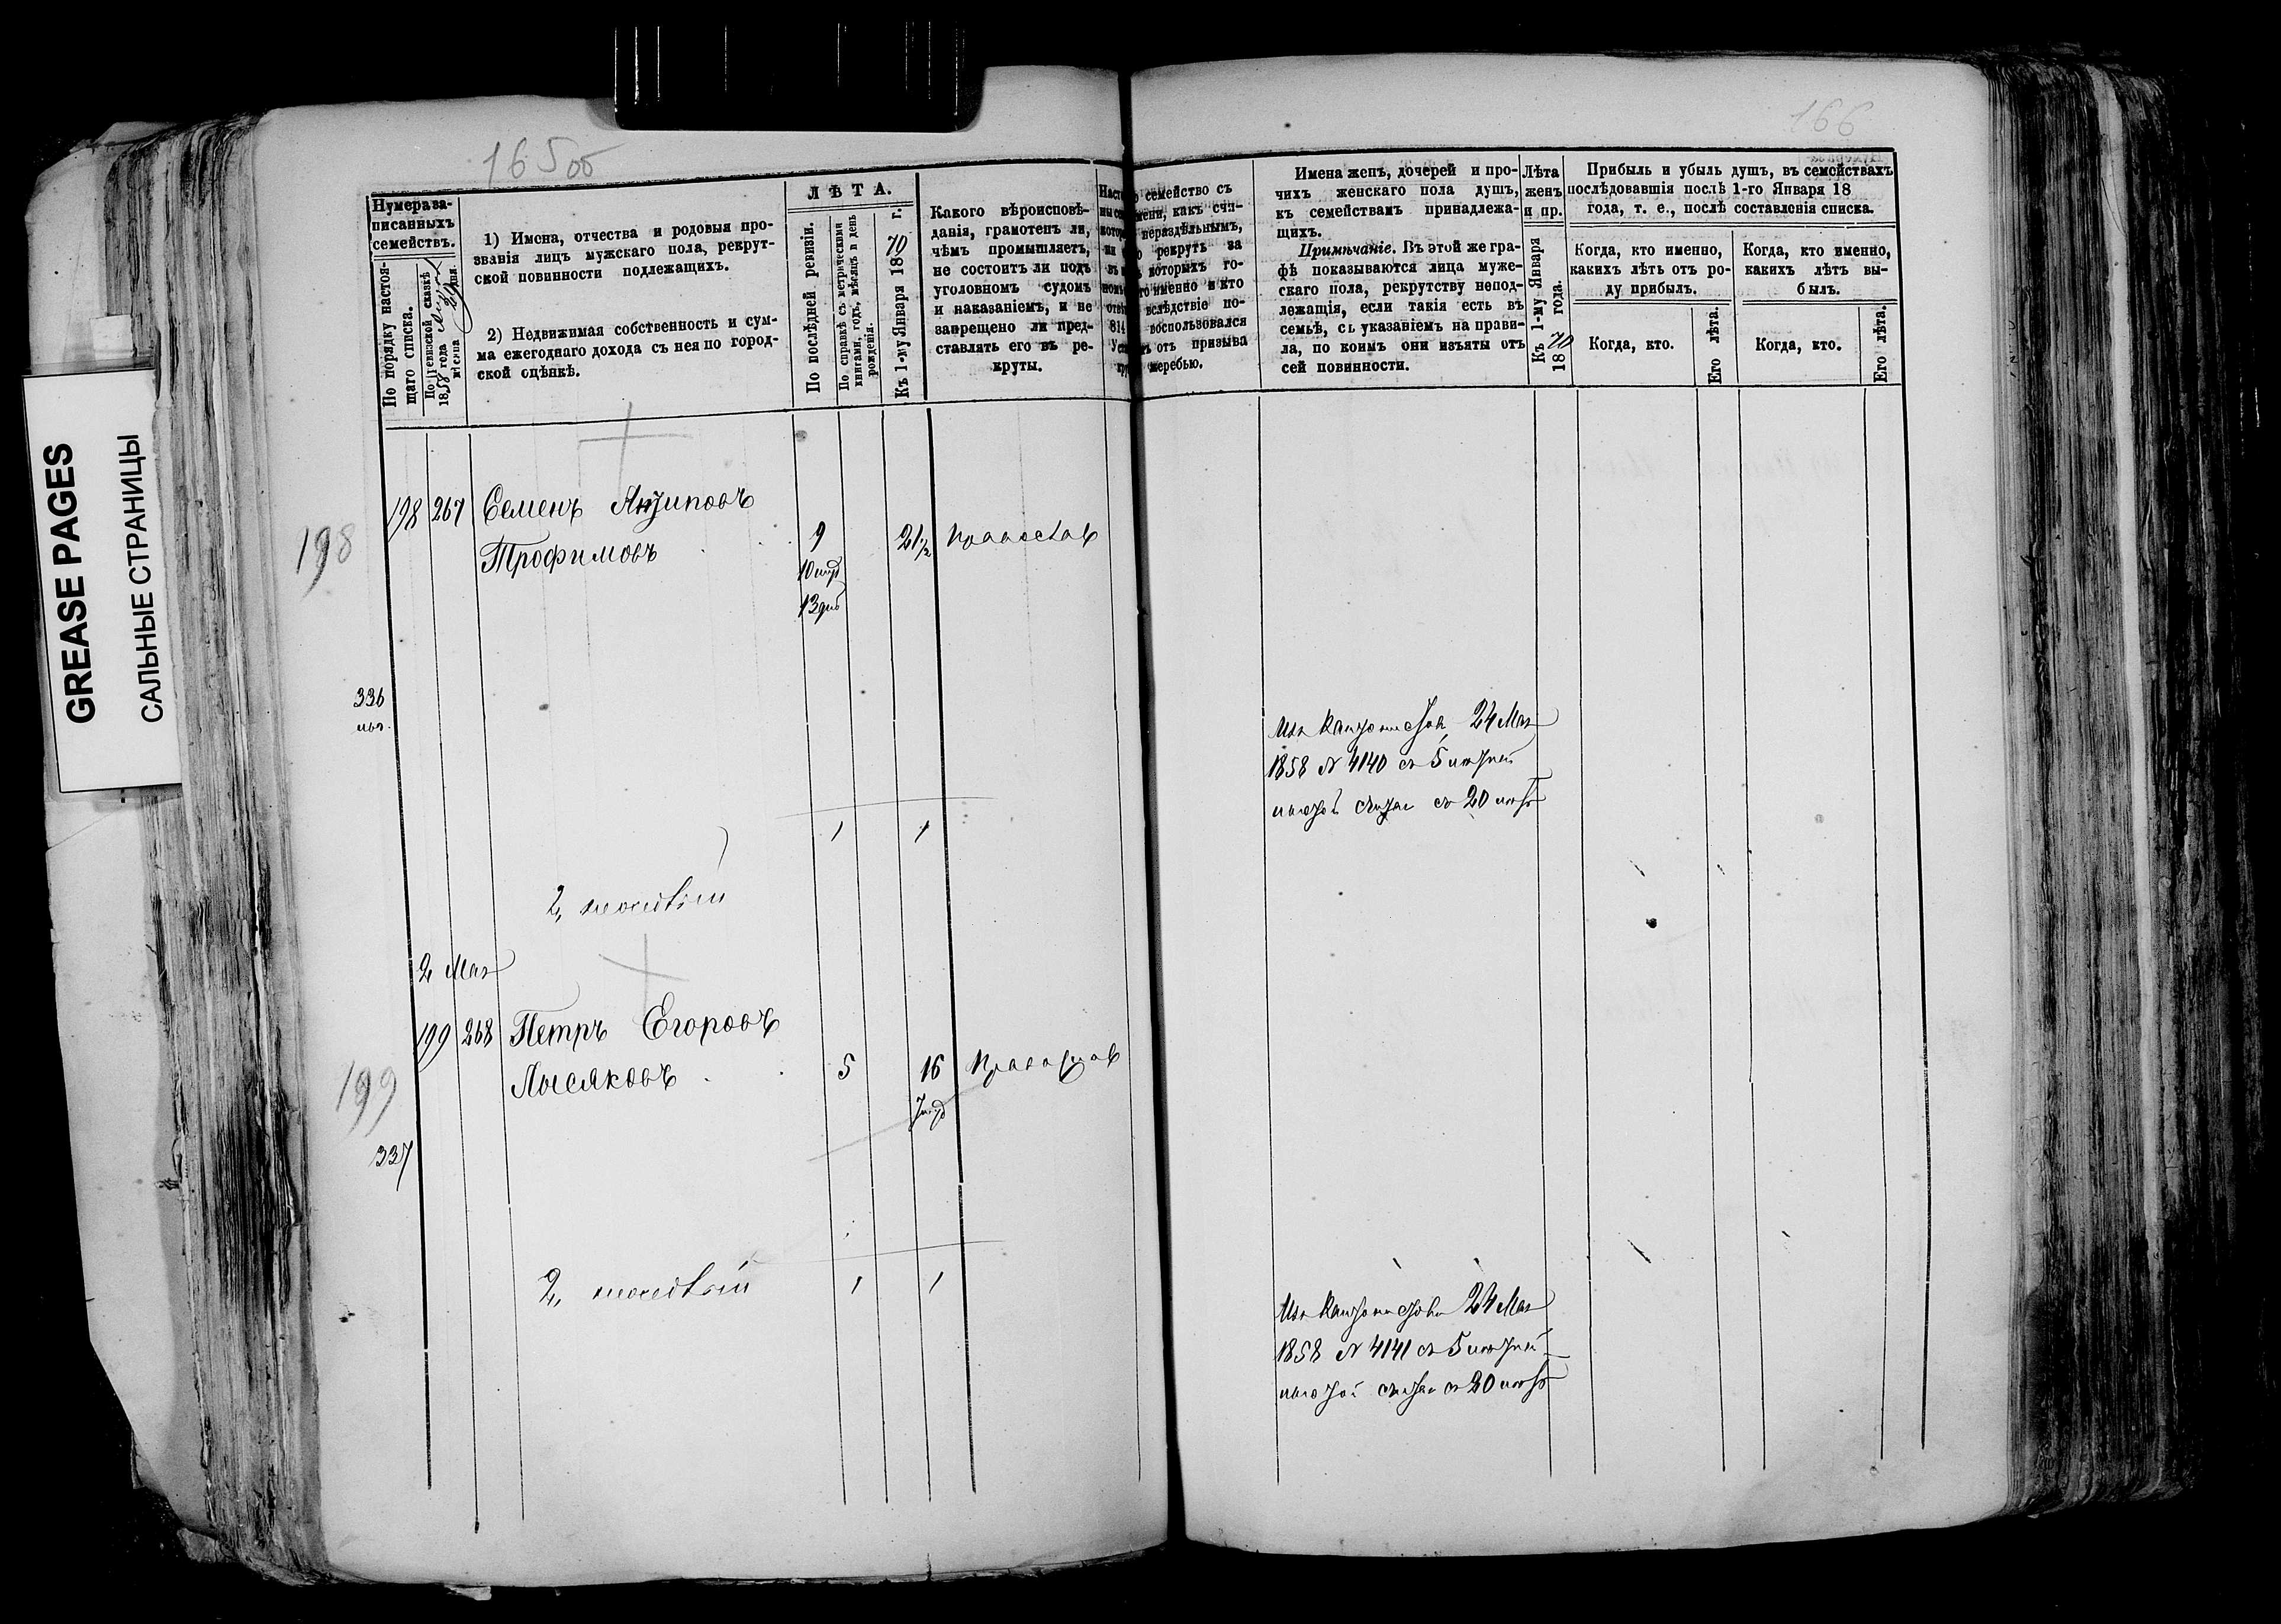 GREASE PAGES
САЛЬНЫЕ СТРАНИЦЫ
165об
Нумера за-
писанныхъ
семействъ.
По порядку настоя-
щаго списка.
По ревизской сказкѣ
1858 года
1) Имена, отчества и родовыя про-
званія лицъ мужскаго пола, рекрут-
ской повинности подлежащихъ.
2) Недвижимая собственность и сум-
ма ежегоднаго дохода съ нея по город-
ской оцѣнкѣ.
ЛѢТА.
По послѣдней ревизіи.
По справкѣ съ метрическими
книгами, годъ, мѣсяцъ и день
рожденія.
Къ 1-му Января 1870 г.
Какого вѣроисповѣ-
данія, грамотенъ ли,
чѣмъ промышляетъ,
не состоитъ ли подъ
уголовномъ судомъ
и наказаніемъ, и не
запрещено ли пред-
ставлять его въ ре-
круты.
198
198 267 Семенъ Антиповъ
Трофимовъ 9 21½ Православ
10
13
336
1 1
2,
2 Мая
199 268 Петръ Егоровъ
Лысяковъ 5 16 Православ
199
337
2, 1 1
166
семейство съ
какъ счи-
нераздѣльнымъ,
рекрутъ за
которыхъ го-
именно и кто
вслѣдствіе по-
воспользовался
отъ призыва
жеребью.
Имена женъ, дочерей и про-
чихъ женскаго пола душъ,
къ семействамъ принадлежа-
щихъ.
Примѣчаніе. Въ этой же гра-
фѣ показываются лица муже-
скаго пола, рекрутству непод-
лежащія, если такія есть въ
семьѣ, съ указаніемъ на прави-
ла, по коимъ они изъяты отъ
сей повинности.
Лѣта
женъ
и пр.
Къ 1-му Января
1870 года.
Прибыль и убыль душъ, въ семействахъ
послѣдовавшія послѣ 1-го Января 18
года, т. е., послѣ составленія списка.
Когда, кто именно,
какихъ лѣтъ отъ ро-
ду прибылъ.
Когда, кто.
Его лѣта.
Когда, кто именно,
какихъ лѣтъ вы-
былъ.
Когда, кто.
Его лѣта.
Изъ Кантонистовъ 24 Мая
1858 № 4140 съ 5
съ 20
Изъ Кантонистовъ 24 Мая
1858 № 4141 съ 5
съ 20